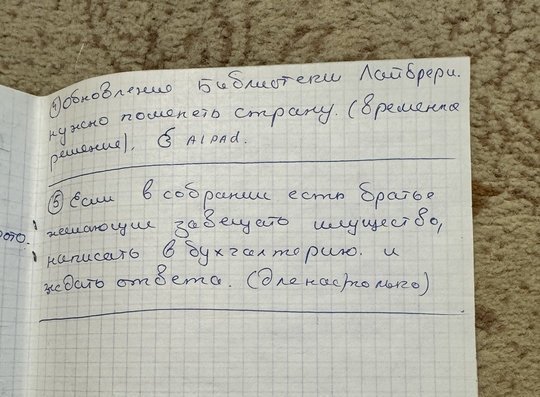 ④ Обновление Библиотеки Лайбрери.
нужно поменять страну. (временна
решение). AIPAD.
⑤ Если в собрании есть братье
желающие завещать имущество,
написать в бухгалтерию. и
ждать ответа. (для нас/только)
ото.